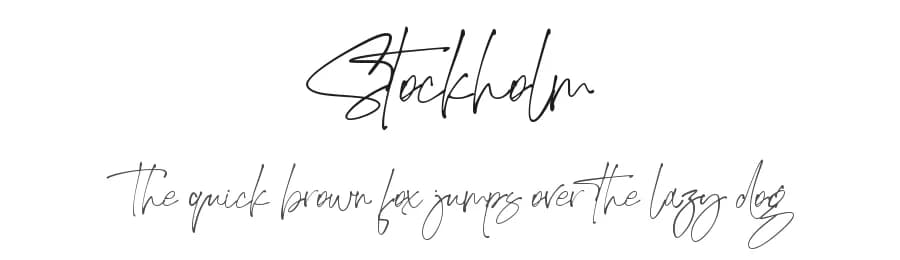 Stockholm
the quick brown fox jumps over the lazy dog